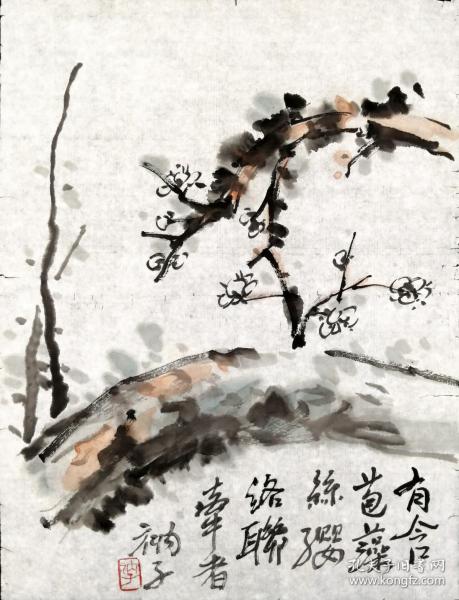 有今口
苞
絲纓
絡聯
牽者
衲子
孔夫子旧书网
www.kongfz.com